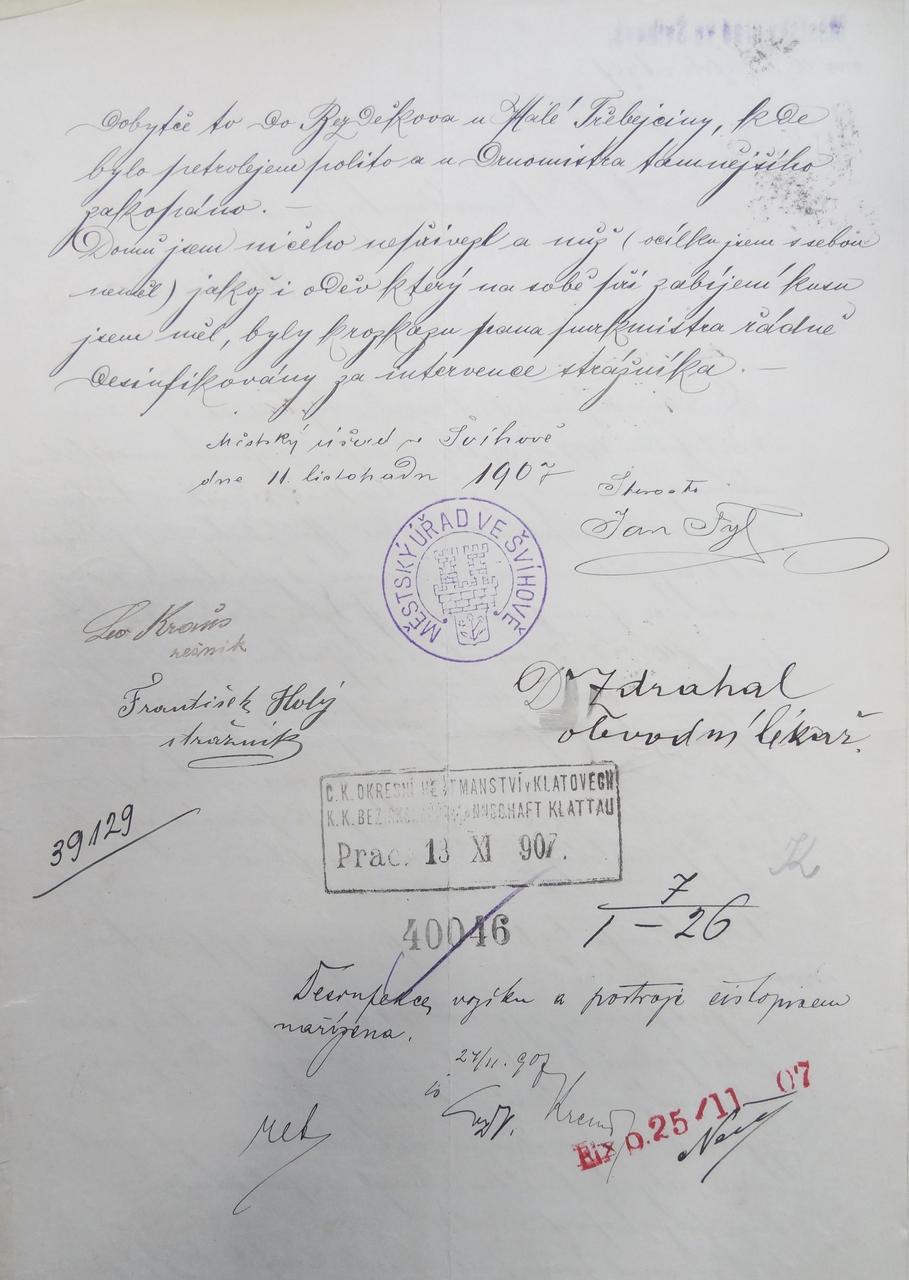 Dobytče to do Bezděkova u Malé Třebejčiny, kde
bylo petrolejem polito a u Drnomistra tamnějšího
zakopáno. —
Domů jsem ničeho nepřivezl a nůž (ocílku jsem s sebou
neměl) jakož i oděv který na sobě při zabíjení kusu
jsem měl, byly k rozkazu pana purkmistra řádně
desinfikovány za intervence strážníka. —
Městský úřad ve Švihově
dne 11. listopadu 1907
Starosta
Jan Fyl
MĚSTSKÝ ÚŘAD VE ŠVIHOVĚ
Leo Kraus
řezník
František Holý
strážník
Dr Zdrahal
obvodní lékař.
C. K. OKRESNÍ HEJTMANSTVÍ v KLATOVECH
K. K. BEZIRKSHAUPTMANNSCHAFT KLATTAU
Praes. 13 XI 907.
39129
7
1 – 26
40046
Desinfekce vozíku a postroje čistopisem
nařízena.
24/11. 907
Exp. 25/11 07